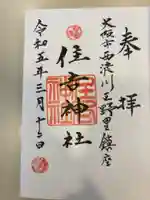 奉拝
大阪市西淀川区野里鎮座
住吉神社
住吉神社
令和五年三月十五日